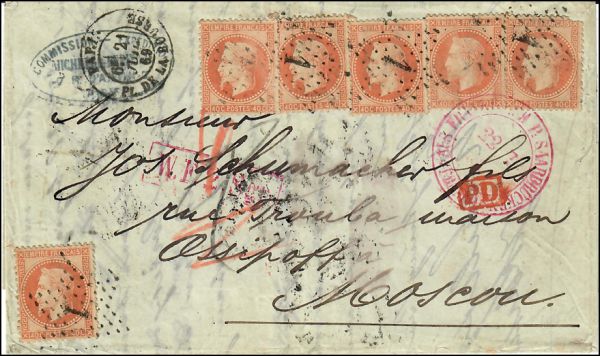 COMMISSION
PARIS
21
69
PL. DE LA BOURSE
EMPIRE FRANÇAIS
40C POSTES 40C
EMPIRE FRANÇAIS
40C POSTES 40C
EMPIRE FRANÇAIS
40C POSTES 40C
EMPIRE FRANÇAIS
40C POSTES 40C
EMPIRE FRANÇAIS
40C POSTES 40C
1
1
Monsieur
Jos Schumacher fils
rue Trouba maison
Ossipoff
Moscou.
P.D.
EMPIRE FRANÇAIS
40C POSTES 40C
1